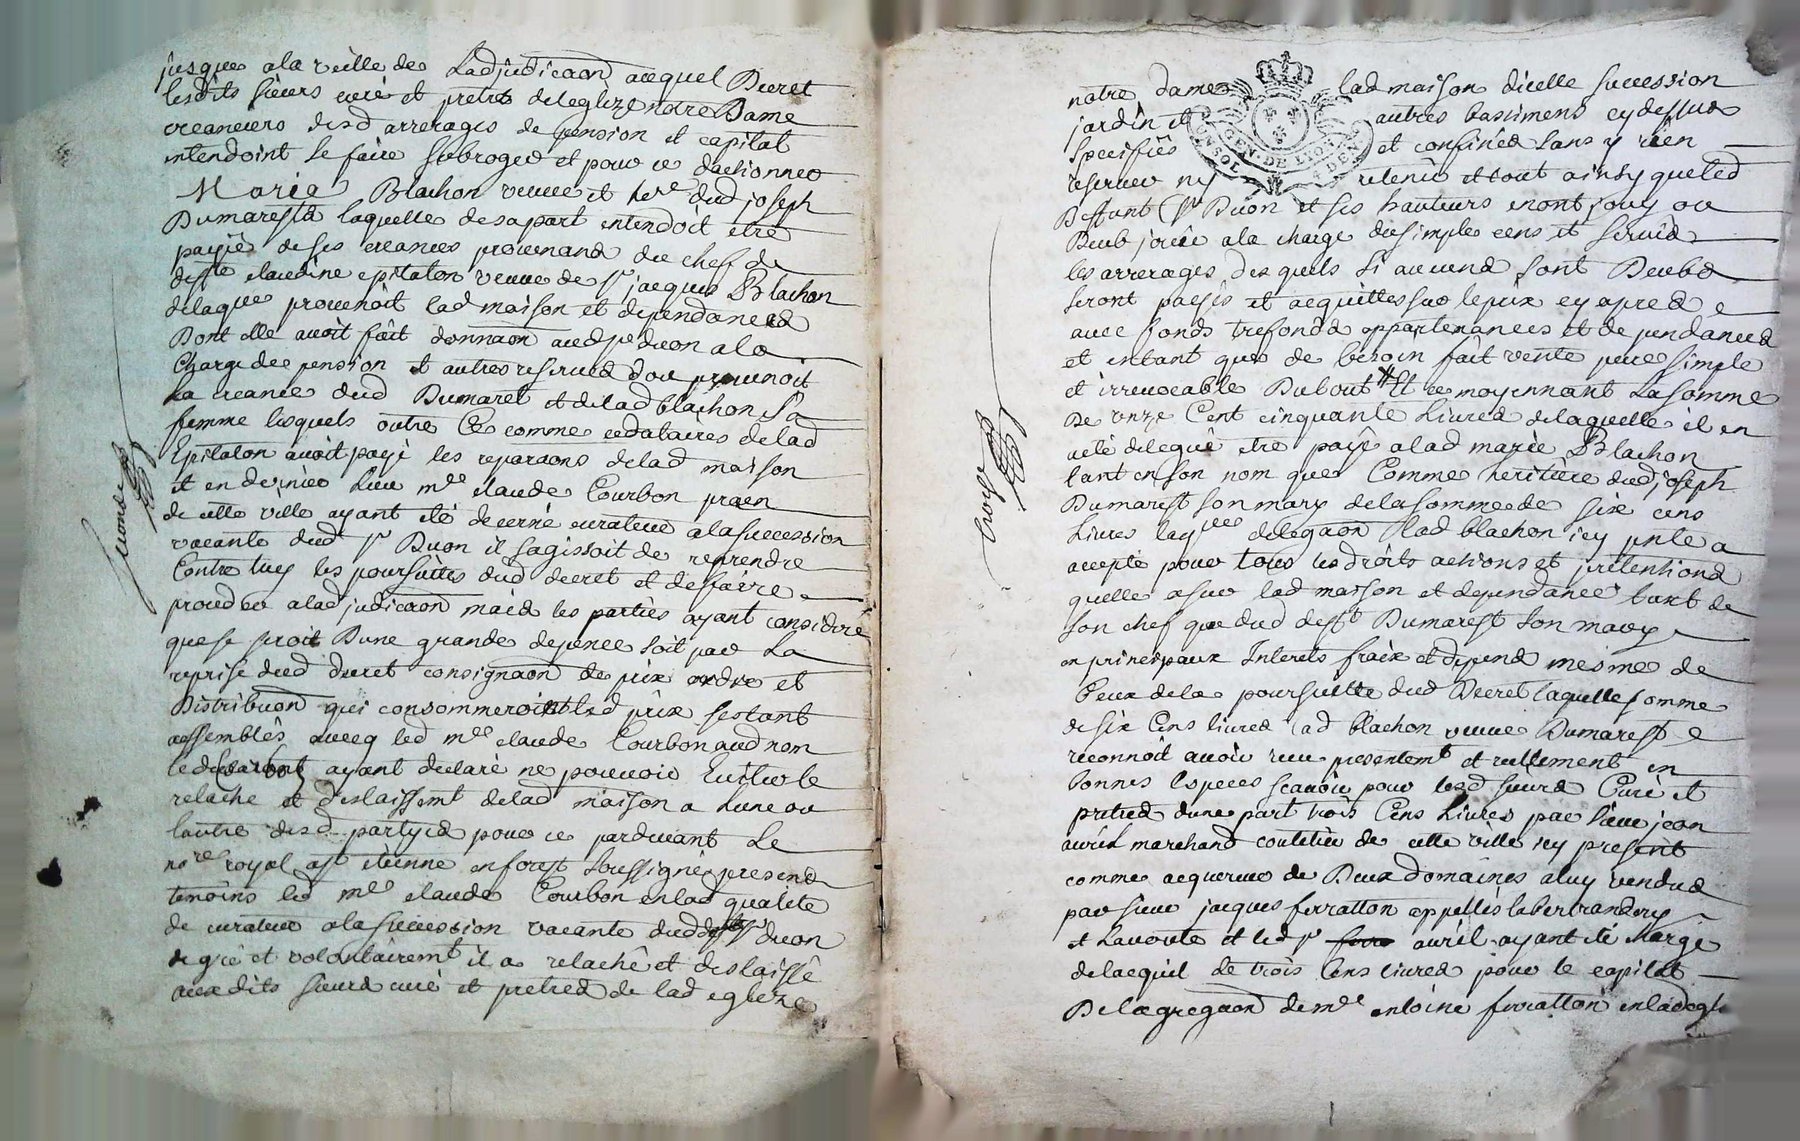 jusques a la veille de Ladjudicaon auquel Decret
lesdits sieurs curé et pretres de leglize notre Dame
creanciers desd arrerages de pension et capital
intendoint se faire subroger et pour ce dactionner
Maria Blachon veuve et her.e dud joseph
Dumarest a laquelle de sa part intendoit etre
payié de ses creances provenand du chef de
deffte claudine epitalon veuve de sr jacques Blachon
de laque provenoit lad maison et dependances
Dont elle avoit fait donnaon aud sr duon a la
Charge de pension et autres reserves dou provenoit
La creance dud Dumarest et de lad blachon sa
femme lesquels outre Ce comme cedataires de lad
Epitalon avoit payé les reparaons de lad maison
et en dernier Lieu me claude Courbon praen
de cette ville ayant eté decerné curateur a la succession
vacante dud sr Duon il sagissoit de reprendre
Contre luy les poursuites dud decret et de faire
proceder a ladjudicaon mais les parties ayant consideré
que se seroit Dune grande depence soit par La
reprise dud decret consignaon de prix ordre et
Distribuon qui consommeroint led prix sestant
assemblés avecq led me claude Courbon aud nom
ayant declaré ne pouvoir Eviter le
relache et deslaissemt de lad maison a Lune ou
lautre desd partyes pour ce pardevant Le
nore royal a st etienne en forest soussigné presend
temoins led me claude Courbon en lad qualité
de curateur a la succession vacante dud sr duon
de gré et volontairemt il a relaché et deslaissé
aux dits sieurs curé et pretres de lad eglize
second
notre dame lad maison dicelle succession
jardin et autres bastimens cy dessus
Specifiés et confinés sans y rien
reserver ny retenir et tout ainsy que led
Deffunt sr Duon et ses hauteurs en ont jouy ou
Deub jouir a la charge du simple cens et servis
les arrerages desquels si aucuns sont Deubs
seront payés et acquittes sur le prix cy apres
avec fonds trefonds appartenances et dependances
et entant que de besoin fait vente pure simple
et irrevocable Du tout # Et ce moyennant La somme
De onze Cent cinquante Livres de laquelle il en
a eté delegué etre payé a lad marie Blachon
tant en son nom que Comme heritiere dud joseph
Dumarest son mary de la somme de six cens
Livres laqlle delegaon lad blachon icy pnte a
accepté pour tous les droits actions et prétentions
quelle a sur lad maison et dependance tant de
son chef que dud defft Dumarest son mary
en principaux Interets fraix et depens mesme de
Ceux de la poursuitte dud Decret laquelle somme
de six Cens livres lad blachon veuve Dumarest
reconnoit avoir reçu presentemt et reellement en
bonnes especes scavoir pour lesd sieurs Curé et
pretres dune part trois Cens Livres par sieur jean
avril marchand coutelier de cette ville icy present
comme acquereur de Deux domaines a luy vendus
par sieur jacques ferratton appellés labertrandery
et Lavoute et led sr avril ayant eté chargé
de lacquit de trois Cens livres pour le capital
De lagregaon de me antoine ferratton en lad egl
CON SOL GEN. DE LYON 4 DEN